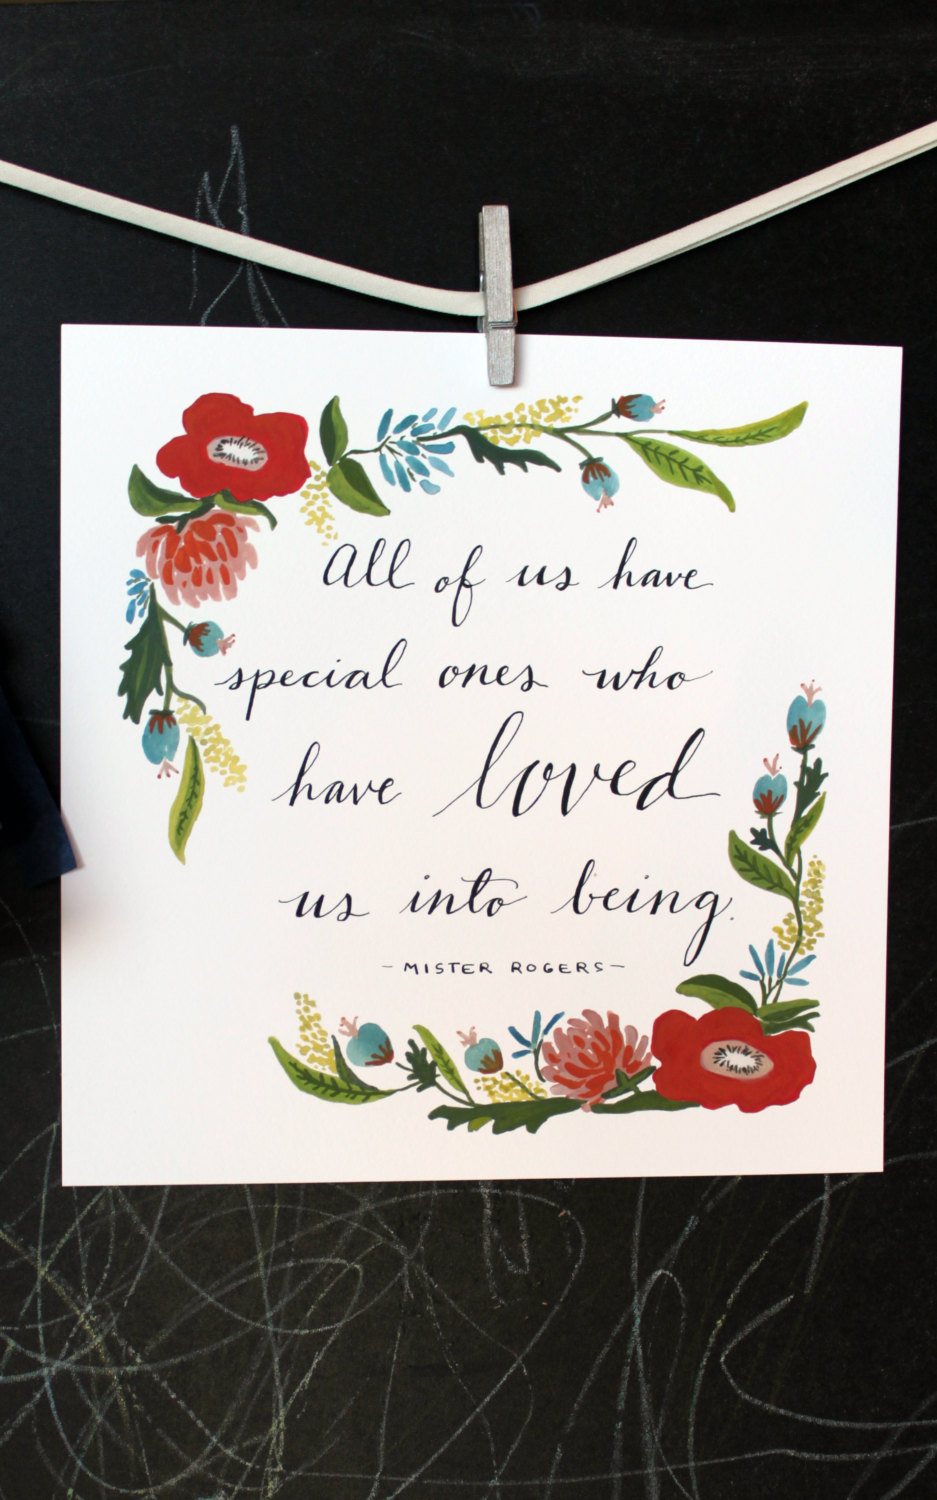 All of us have
special ones who
have loved
us into being.
- MISTER ROGERS -